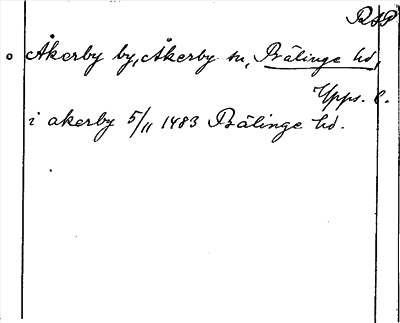 RAP
o Åkerby by, Åkerby sn, Bälinge hd,
Upps. l.
i akerby 5/11 1483 Bälinge hd.